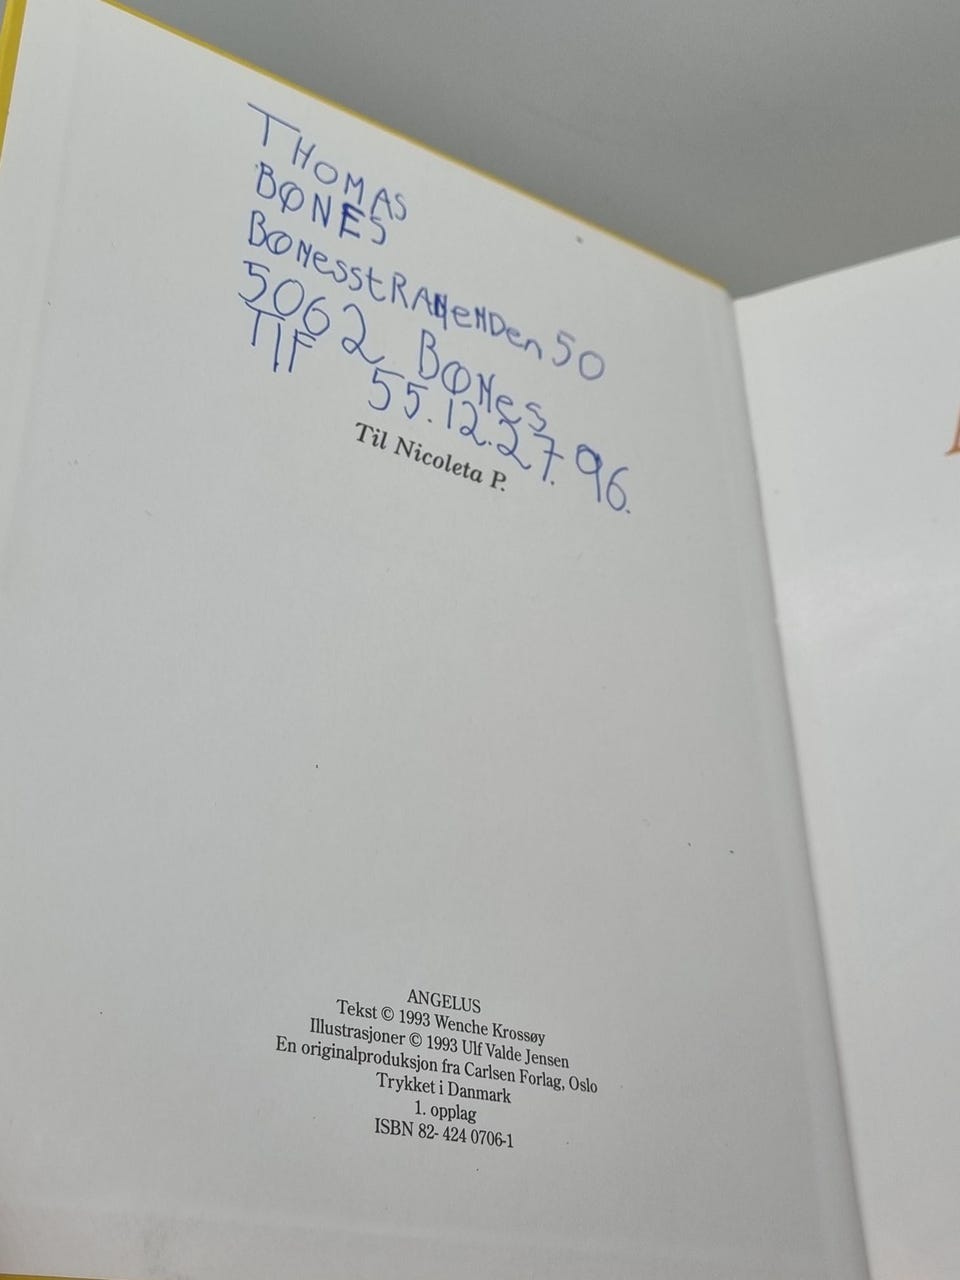 THOMAS
BØNES
BØNesstRANeNDen 50
5062 BØNes
TIF 55.12.27.96.
Til Nicoleta P.
ANGELUS
Tekst © 1993 Wenche Krossøy
Illustrasjoner © 1993 Ulf Valde Jensen
En originalproduksjon fra Carlsen Forlag, Oslo
Trykket i Danmark
1. opplag
ISBN 82- 424 0706-1